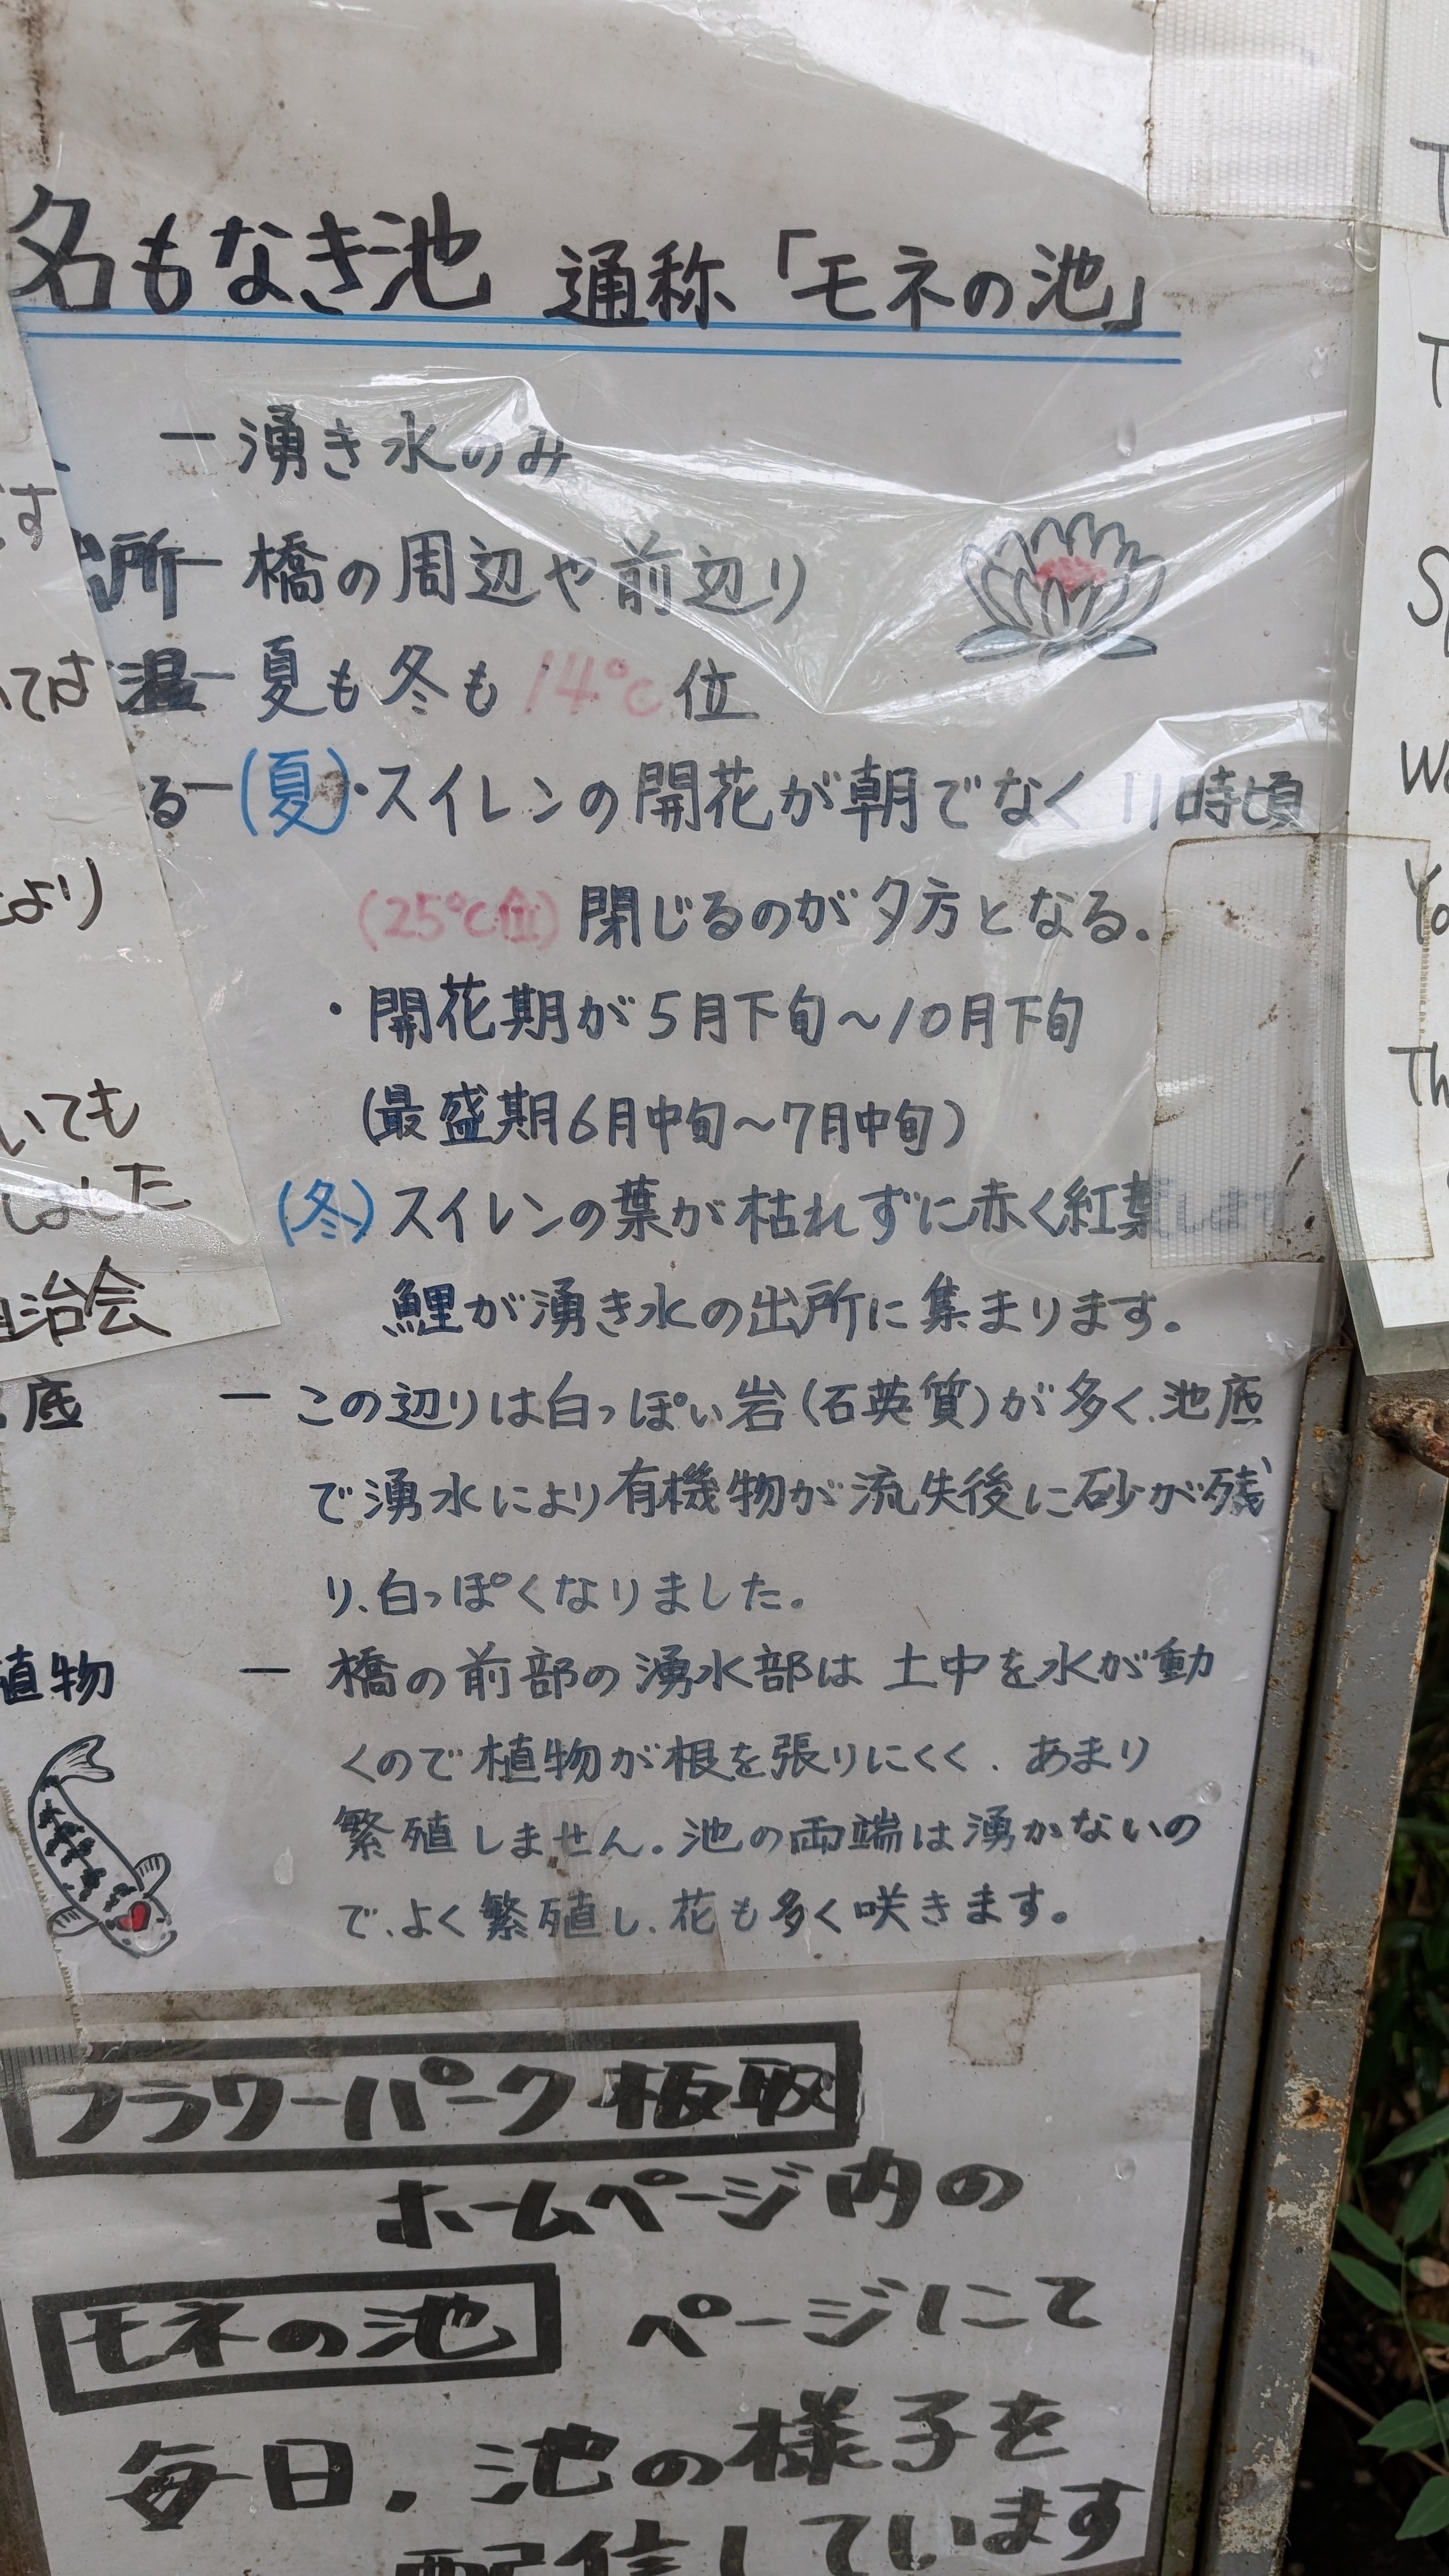 名もなき池 通称「モネの池」
ー湧き水のみ
す
所ー橋の周辺や前辺り
ては
温ー夏も冬も14℃位
るー(夏)・スイレンの開花が朝でなく11時頃
(25℃位)閉じるのが夕方となる。
より
・開花期が5月下旬〜10月下旬
いても
(最盛期6月中旬〜7月中旬)
しました
(冬)スイレンの葉が枯れずに赤く紅葉します
自治会
鯉が湧き水の出所に集まります。
底 ーこの辺りは白っぽい岩(石英質)が多く、池底
で湧水により有機物が流失後に砂が残
り、白っぽくなりました。
植物 ー橋の前部の湧水部は土中を水が動
くので植物が根を張りにくく、あまり
繁殖しません。池の両端は湧かないの
で、よく繁殖し、花も多く咲きます。
フラワーパーク板取
ホームページ内の
モネの池 ページにて
毎日、池の様子を
配信しています
Th